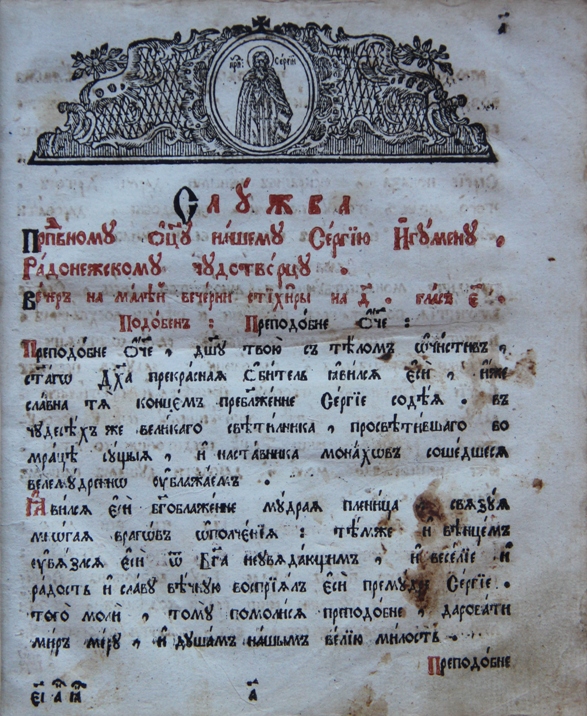 а҃
прⷣ Сергїй
Слꙋ́жба
Прпⷣбному ѻ҆ц҃ꙋ̀ на́шемꙋ Се́ргїю И҆гꙋ́менꙋ ,
Ра́донежскомꙋ чꙋдотво́рцꙋ .
Ве́черъ на ма́лѣй вече́рни стїхи́ры на д҃ . гла́съ є҃ .
Подо́бенъ : Преподо́бне ѻ҆́ч҃е :
Преподо́бне ѻ҆́ч҃е , дш҃ꙋ твою̀ съ тѣ́ломъ ѡ҆чи́стивъ ,
ст҃а́гѡ дх҃а прекра́сная ѻ҆би́тель ꙗ҆ви́лся є҆сѝ , и҆́же
сла́вна тѧ̀ конце́мъ пребл҃же́нне Се́ргїе содѣ́я . въ
чꙋдесѣ́хъ же вели́каго свѣти́лника , просвѣти́вшаго во
мра́цѣ сꙋ́щыя , и҆ наста́вника мона́хѡвъ соше́дшеся
велемꙋ́дреннѡ ᲂу҆блажа́емъ .
Ꙗ҆ви́лся є҆сѝ бг҃облаже́нне мꙋ́драя плени́ца , свѧзꙋ́я
мнѡ́гая врагѡ́въ ѡ҆полче́нїя : тѣ́мже и҆ вѣнце́мъ
ᲂу҆вѧзлся є҆сѝ ѿ бг҃а неꙋвѧда́ющимъ , и҆ весе́лїе и҆
ра́дость и҆ сла́вꙋ вѣ́чнꙋю воспрїѧ́лъ є҆сѝ премꙋ́дре Се́ргїе .
того̀ молѝ , томꙋ̀ помоли́ся преподо́бне , дарова́ти
ми́ръ ми́рꙋ , и҆ дꙋша́мъ на́шымъ ве́лїю ми́лость .
Преподо́бне
є҃і а҃ а҃і а҃